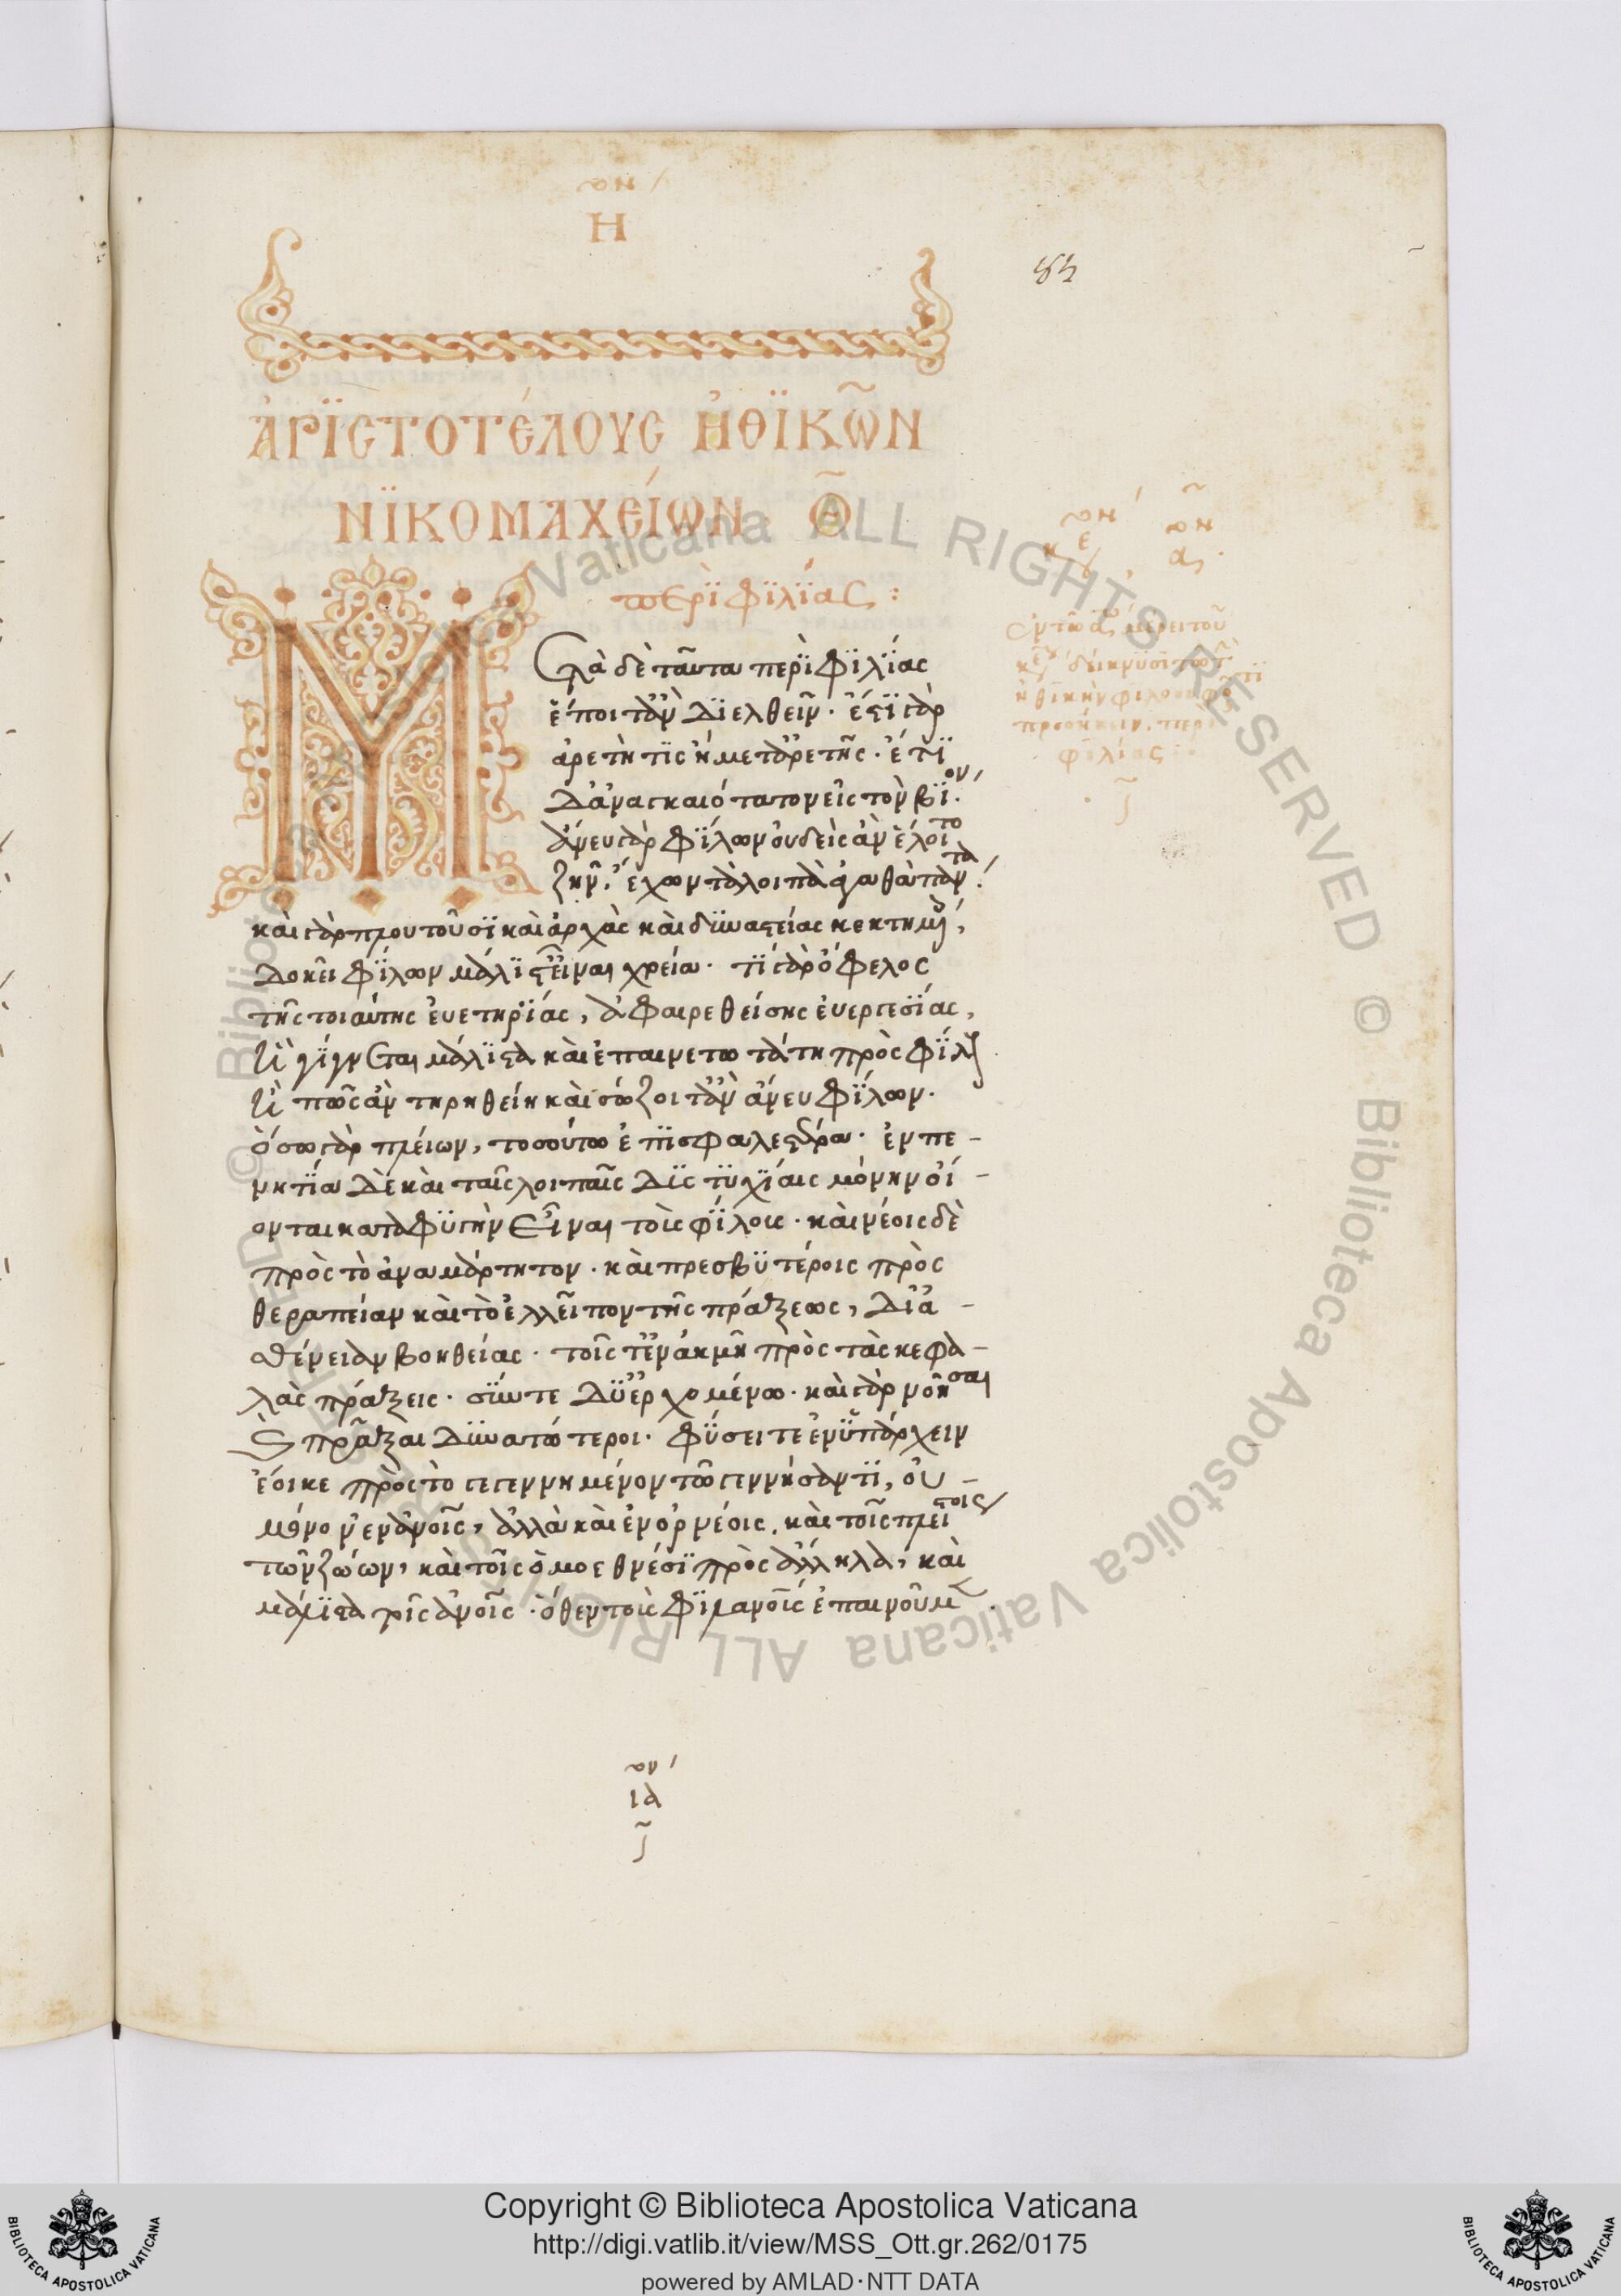 Η
ἈΡΪСΤΟΤΈΛΟΥС ἨΘΪΚΩ͂Ν
ΝΪΚΟΜΑΧΕΊΩΝ Θ
περὶ φϊλΐας :
Μελὰ δὲ ταῦτα περῒ φϊλΐας
ἕποιτ' ἂν δϊελθεῖν · ἔστϊ γὰρ
ἀρετὴ τῒς ἢ μετ' ἀρετῆς · ἔτϊ
δ' ἀναγκαιότατον εἰς τὸν βΐον ·
ἄνευ γὰρ φΐλων οὐδεὶς ἂν ἕλοιτο
ζῆν, ἔχων τὰ λοιπὰ ἀγαθὰ πάντα ·
καὶ γὰρ πλουτοῦσϊ καὶ ἀρχὰς καὶ δϋναστείας κεκτημ,
δοκεῖ φΐλων μάλϊστ' εἶναι χρεία · τΐ γὰρ ὄφελος
τῆς τοιαύτης εὐετηρΐας, ἀφαιρεθείσης εὐεργεσΐας,
ἣ γΐγνεται μάλϊστα καὶ ἐπαινετωτάτη πρὸς φΐλ
ἢ πῶς ἂν τηρηθείη καὶ σώζοιτ' ἂν ἄνευ φΐλων ·
ὅσω γὰρ πλείων, τοσούτω ἐπϊσφαλεστέρα · ἐν πε-
νΐα δὲ καὶ ταῖς λοιπαῖς δϊςτϋχΐαις μόνην οἴ-
ονται καταφϋγὴν εἶναι τοὺς φΐλους · καὶ νέοις δὲ
πρὸς τὸ ἀναμάρτητον · καὶ πρεσβϋτέροις πρὸς
θεραπείαν καὶ τὸ ἐλλεῖπον τῆς πράξεως, δϊ' ἀ-
σθένειαν βοηθείας · τοῖς τ' ἐν ἀκμῆ πρὸς τὰς κεφα-
λὰς πράξεις · σύν τε δϋ' ἐρχομένω · καὶ γὰρ νοῆσαι
καὶ πρᾶξαι δϋνατώτεροι · φύσει τε ἐνϋπάρχειν
ἔοικε πρὸς τὸ γεγεννημένον τῶ γεννήσαντϊ, οὐ-
μόνον ἐν ἀνοῖς, ἀλλὰ καὶ ἐν ὀρνέοις, καὶ τοῖς πλείστοις
τῶν ζώων, καὶ τοῖς ὁμοεθνέσϊ πρὸς ἄλληλα, καὶ
μάλϊστα τοῖς ἀνοῖς · ὅθεν τοὺς φϊλανοὺς ἐπαινοῦμ
ια
Copyright © Biblioteca Apostolica Vaticana
http://digi.vatlib.it/view/MSS_Ott.gr.262/0175
powered by AMLAD·NTT DATA
BIBLIOTECA APOSTOLICA VATICANA
BIBLIOTECA APOSTOLICA VATICANA
© Biblioteca Apostolica Vaticana ALL RIGHTS RESERVED © Biblioteca Apostolica Vaticana ALL RIGHTS RESERVED